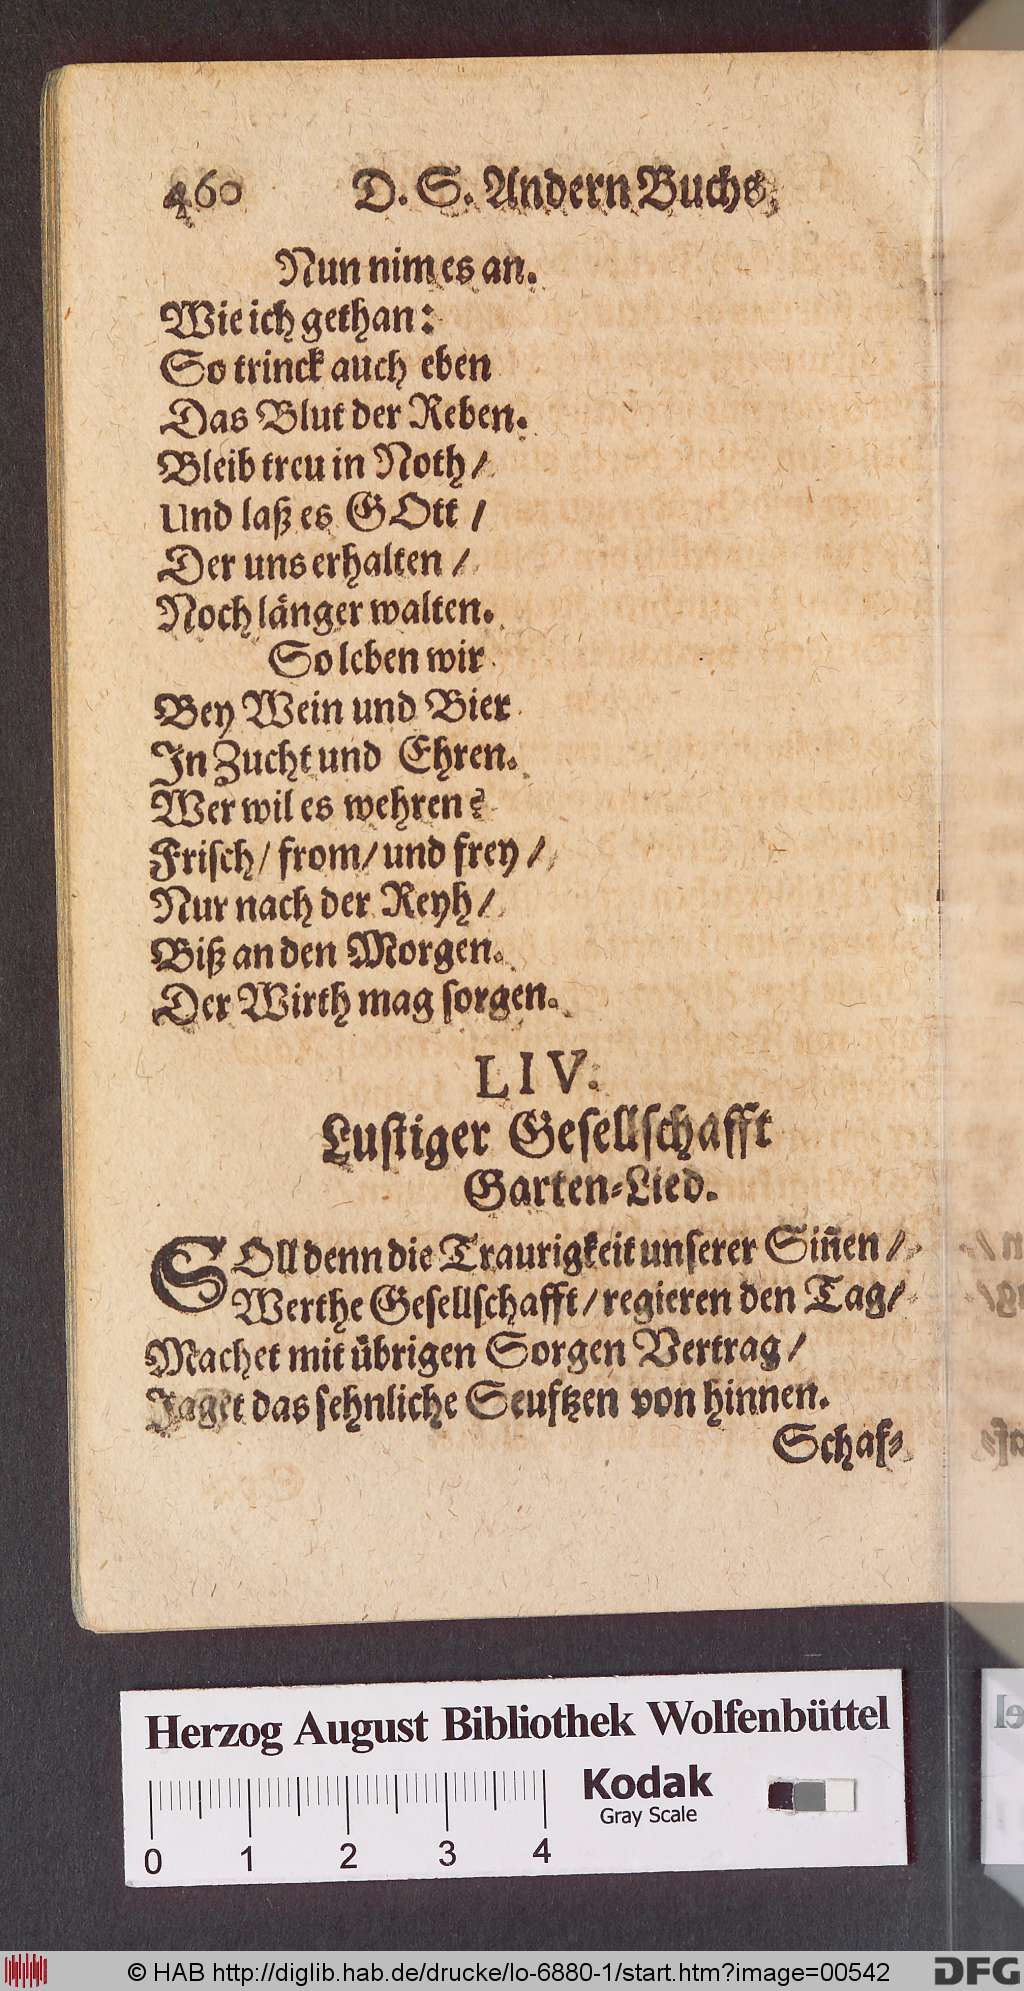 460 D. S. Andern Buchs,
Nun nim es an.
Wie ich gethan:
So trinck auch eben
Das Blut der Reben.
Bleib treu in Noth/
Und laß es GOtt/
Der uns erhalten/
Noch länger walten.
So leben wir
Bey Wein und Bier
In Zucht und Ehren.
Wer wil es wehren?
Frisch/ from/ und frey/
Nur nach der Reyh/
Biß an den Morgen.
Der Wirth mag sorgen.
LIV.
Lustiger Gesellschafft
Garten-Lied.
SOll denn die Traurigkeit unserer Siñen/
Werthe Gesellschafft/ regieren den Tag/
Machet mit übrigen Sorgen Vertrag/
Jaget das sehnliche Seuftzen von hinnen.
Schaf-
Herzog August Bibliothek Wolfenbüttel
Kodak
Gray Scale
0 1 2 3 4
© HAB http://diglib.hab.de/drucke/lo-6880-1/start.htm?image=00542
DFG